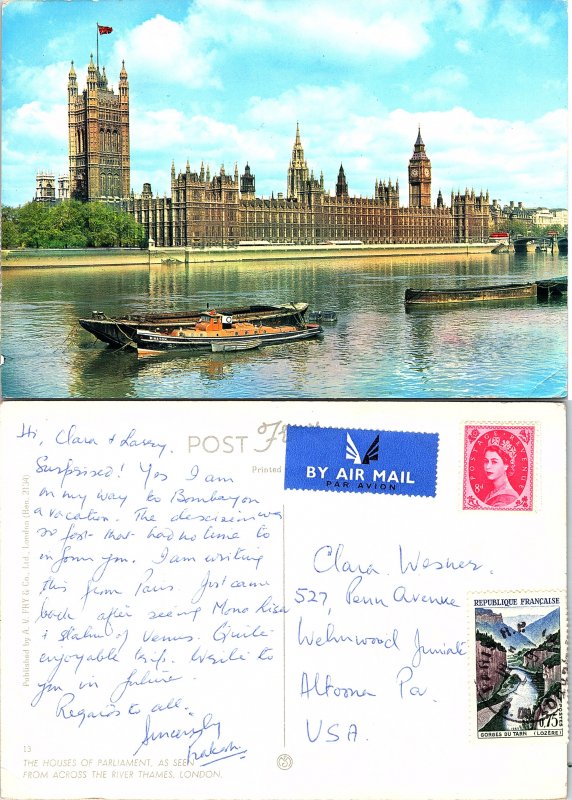 Hi, Clara & Larry
Surprised! Yes I am
on my way to Bombay on
a vacation. The decision was
so fast that had no time to
inform you. I am writing
this from Paris. Just came
back after seeing Mona Lisa
& statue of Venus. Quite
enjoyable trip. Write to
you in future.
Regards to all.
Sincerely
Prakash
POST
Printed
BY AIR MAIL
PAR AVION
POSTAGE REVENUE
8D
Clara Wesner
527, Penn Avenue
Altoona Pa.
USA.
REPUBLIQUE FRANÇAISE
0,75
GORGES DU TARN (LOZÈRE)
Published by A. V. FRY & Co., Ltd., London (Ber. 2134)
13
THE HOUSES OF PARLIAMENT, AS SEEN
FROM ACROSS THE RIVER THAMES, LONDON.